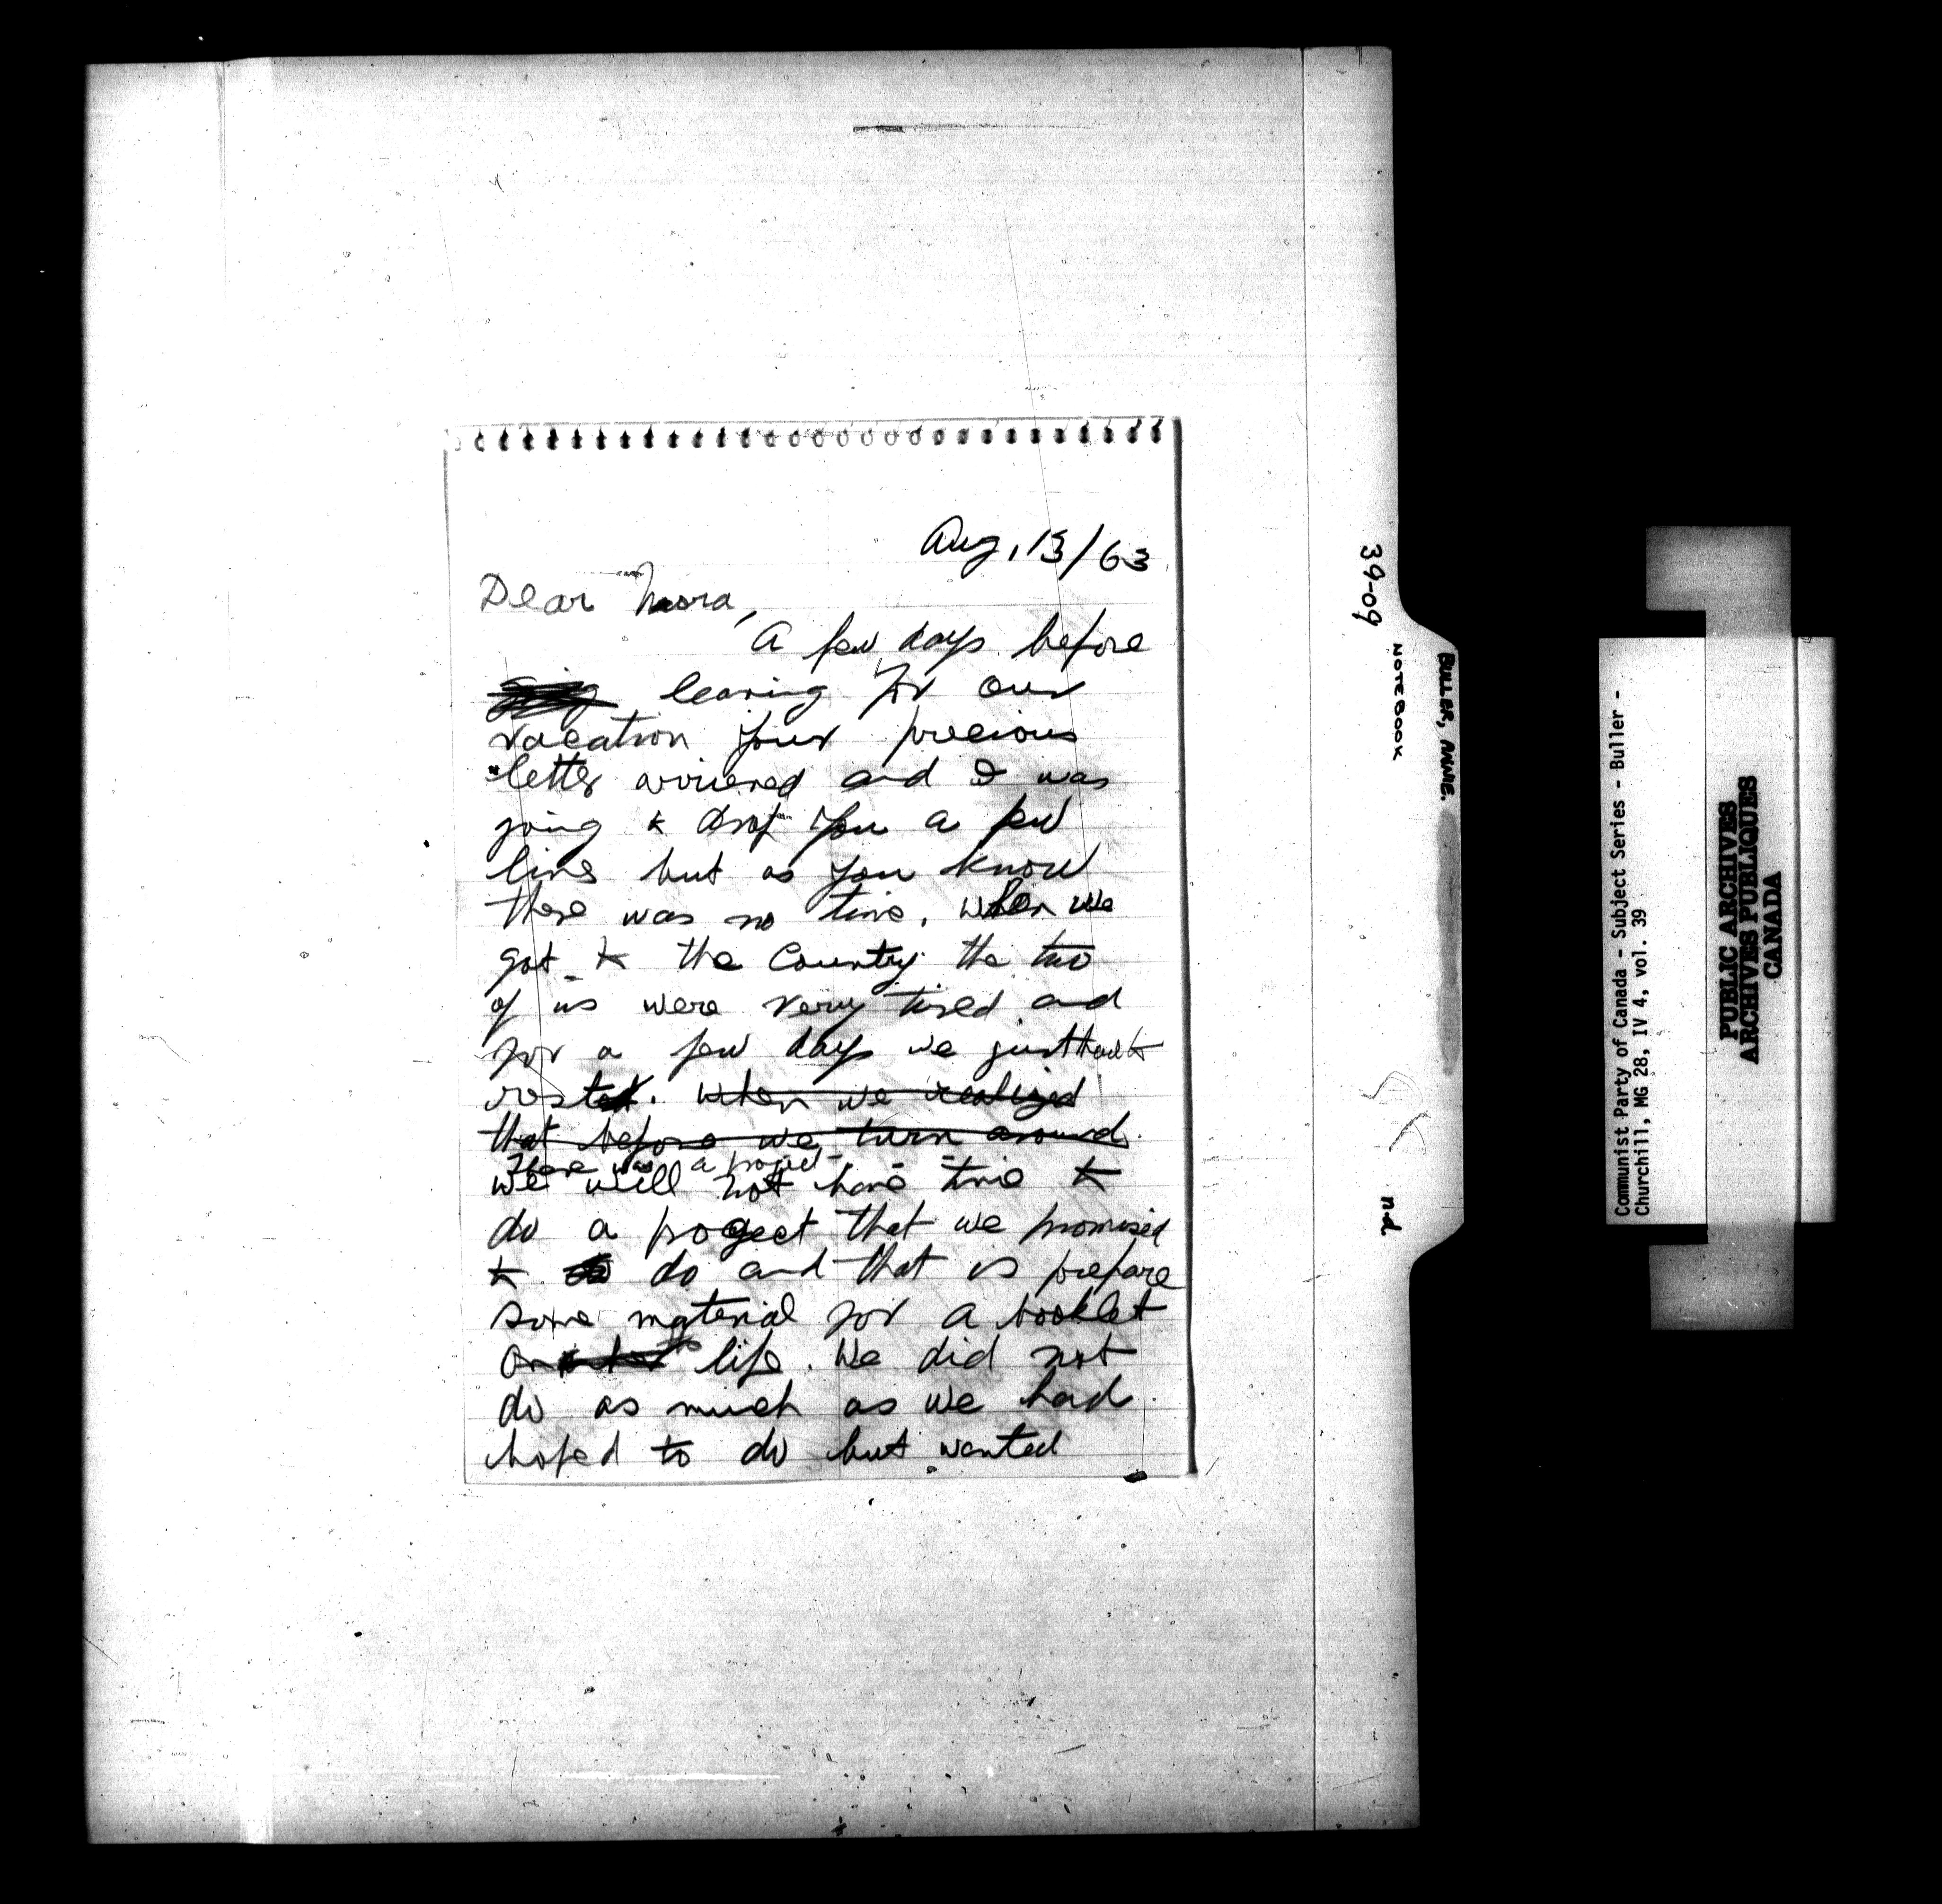 Aug, 13/63
Dear Nora,
A few days before
leaving for our
vacation your precious
letter arriened and I was
going to drop you a few
lins but as you know
there was no time. When we
got to the Country the two
of us were very tired and
for a few days we just had to
rest. When we realized
that before we turn around.
There was a project
we will not have time to
do a progect that we promised
to do and that is prepare
some material for a booklet
on life. We did not
do as much as we had
hoped to do but wanted
39-09
NOTEBOOK
n.d
BULLER, ANNIE.
Communist Party of Canada - Subject Series - Buller -
Churchill, MG 28, IV 4, vol. 39
PUBLIC ARCHIVES
ARCHIVES PUBLIQUES
CANADA